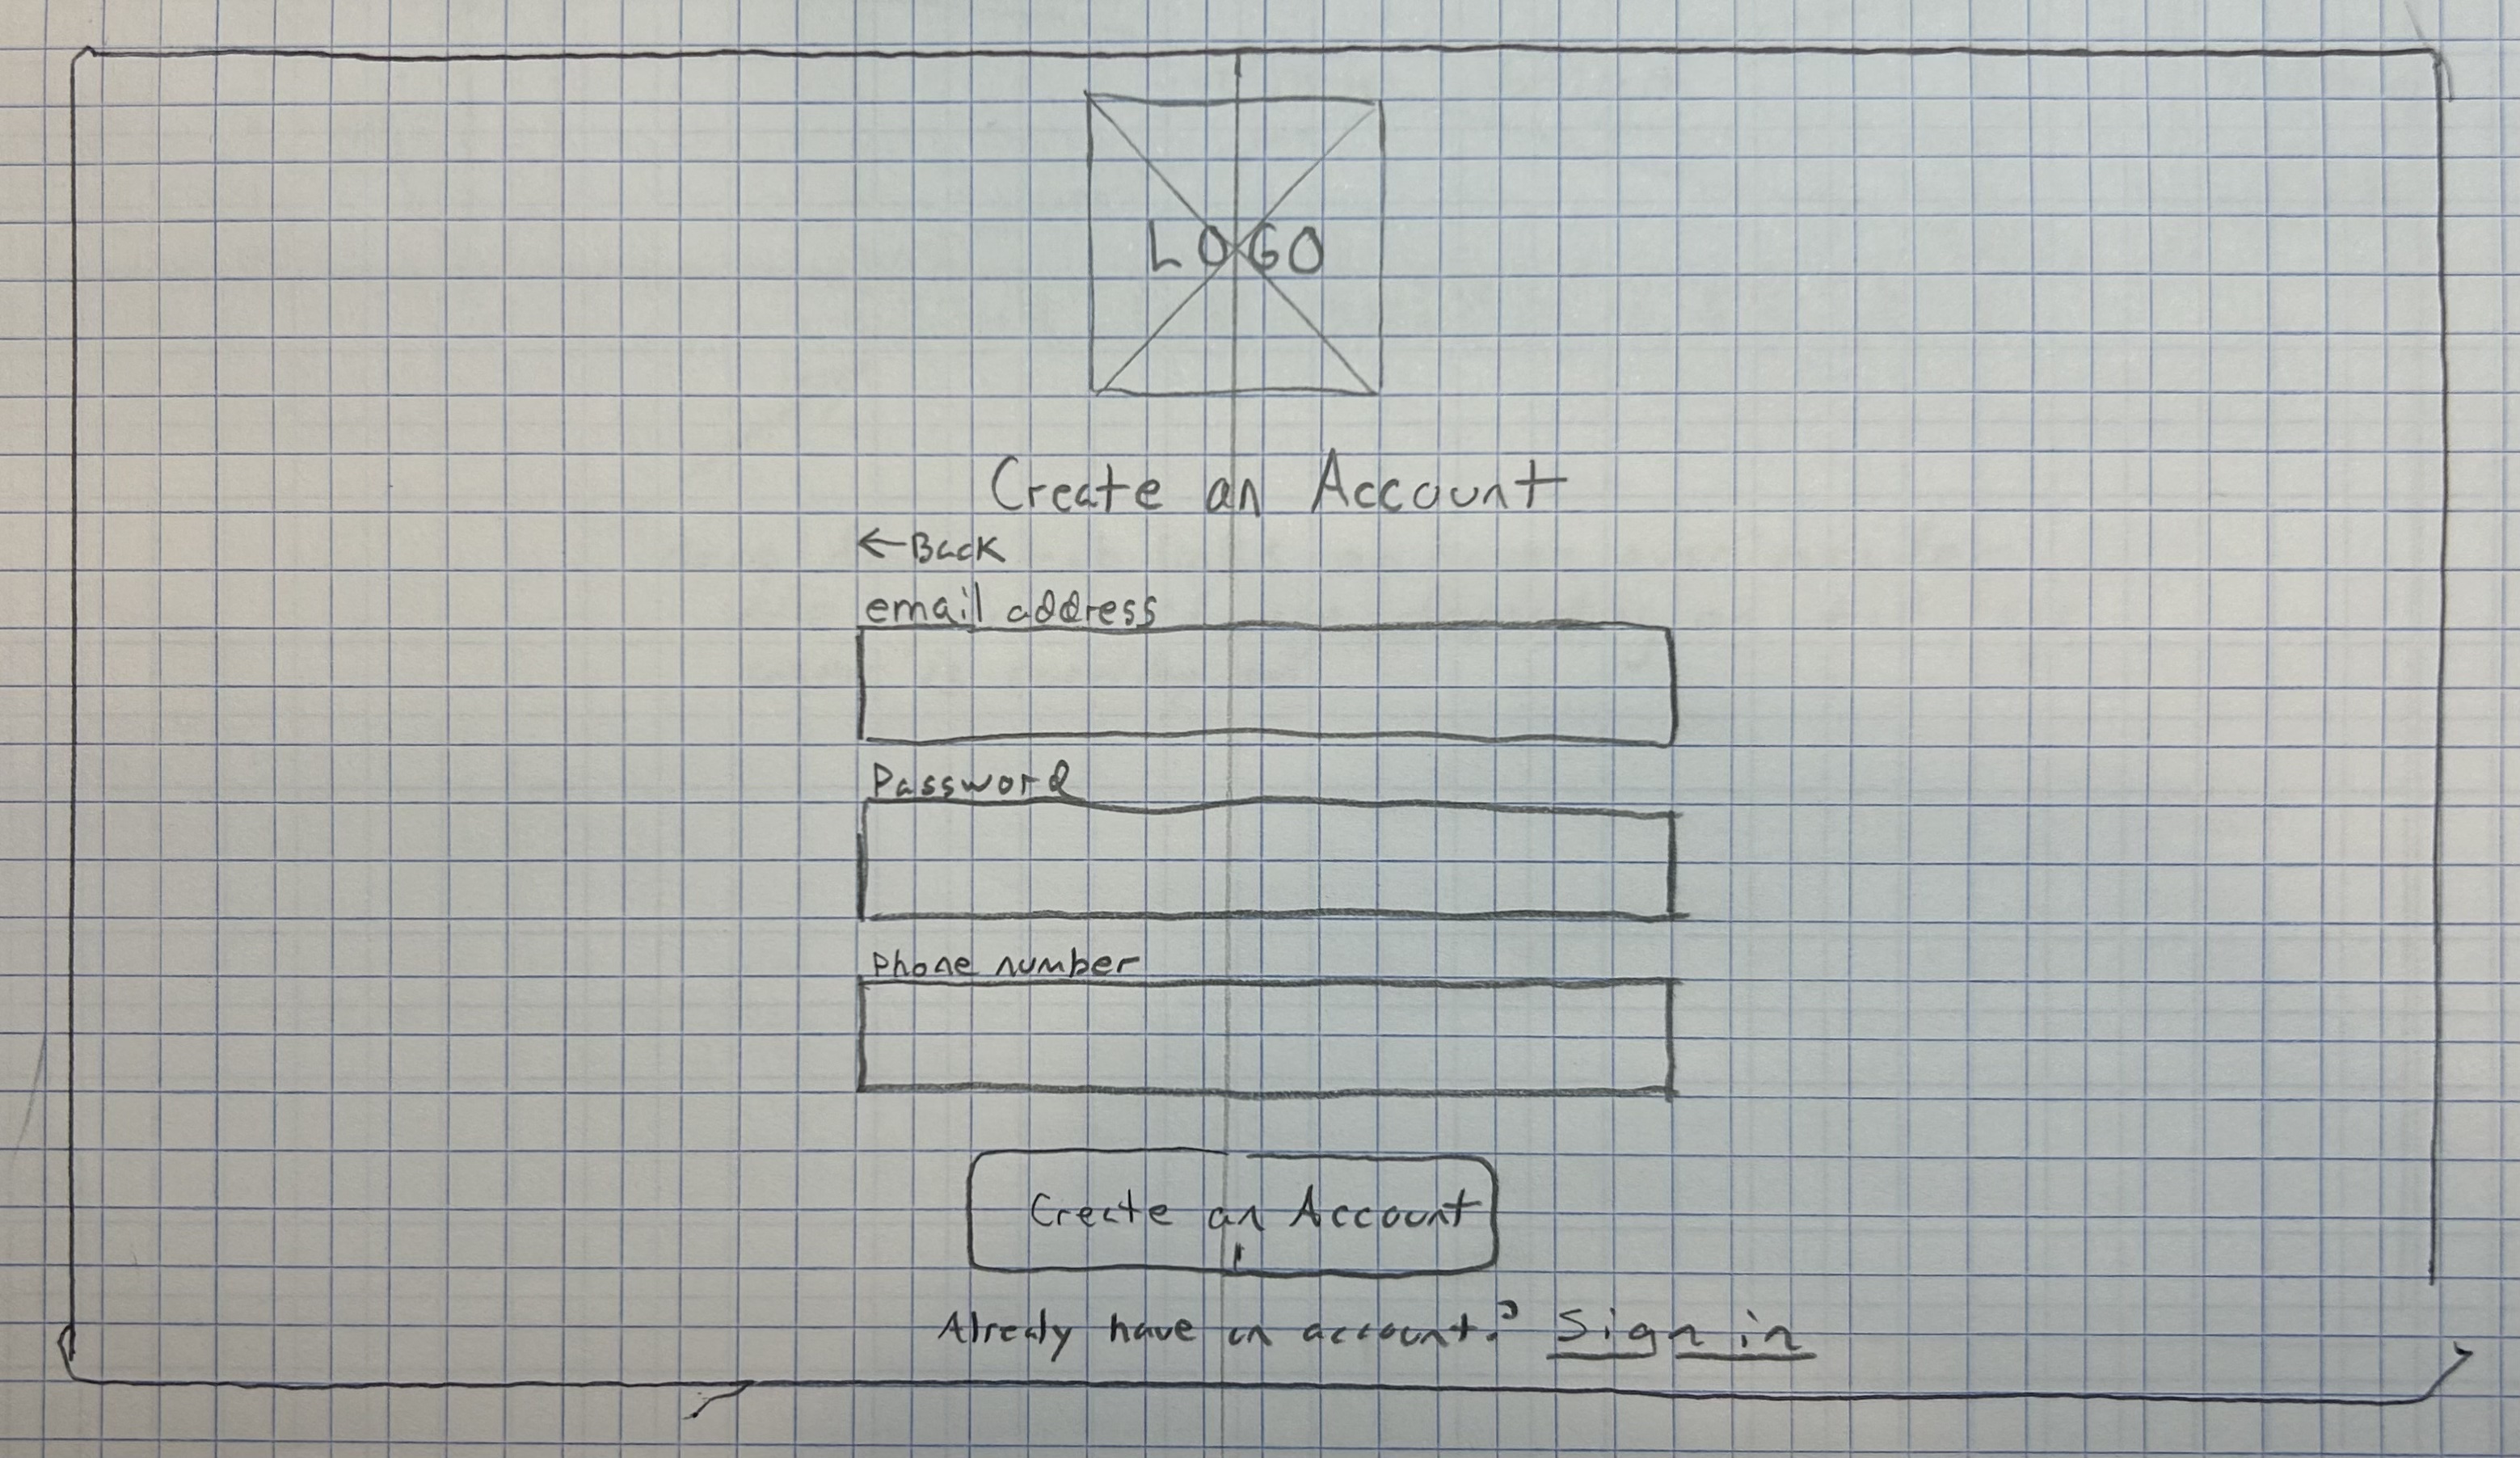 LOGO
Create an Account
←Back
email address
Password
Phone number
Create an Account
Already have an account? Sign in